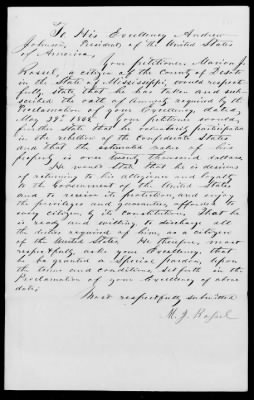 To His Excellency Andrew
Johnson, President of the United States
of America,
Your petitioner, Marion J.
a citizen of the County of
in the State of Mississippi, would respect-
fully, state, that he has taken and sub-
scribed the oath of Amnesty required by the
Proclamation of your Excellency, dated,
May 29th 1865. Your petitioner, would,
further state that he voluntarily participated
in the rebellion of the Confederate States
and that the estimated value of his
property is over twenty thousand dollars.
He would state that he is desirous
of returning to his allegiance and loyalty
to the Government of the United States
and to receive its protection, and enjoy
the privileges and guaranties, afforded to
every citizen, by its constitution. That he
is ready and willing to discharge all
the duties required of him, as a citizen
of the United States. He therefore, most
respectfully, asks your Excellency, that
he be granted a Special pardon, upon
the terms and conditions, set forth in the
Proclamation of your Excellency of above
date;
Most respectfully submitted
M. J.